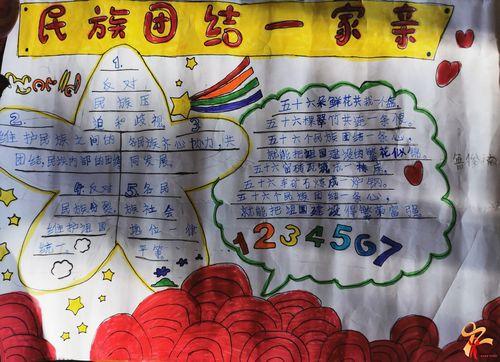 民族团结一家亲
1.
反对
民族压
迫和歧视
2.
维护民族之间的
团结,民族内部的团结
3
各民族齐心协力,共
同发展。
4.反对
民族分裂,
维护祖国
统一
5.各民
族社会
地位一律
平等
五十六朵鲜花共
五十六棵翠竹共连一条根。
五十六个民族团结一条心,
就能把祖国建设的繁花似锦。
五十六
五十六
五十六个民族团结一条心,
就能把祖国建设得繁荣富强
1234567